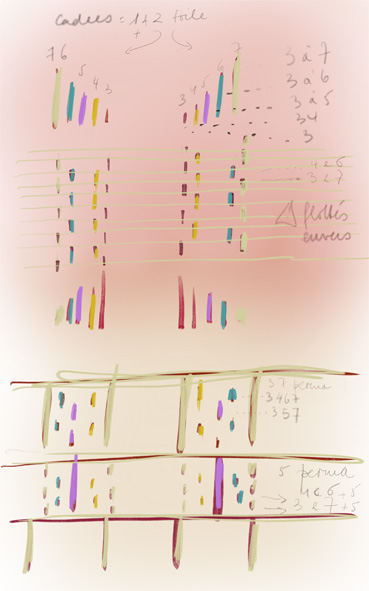 cadres : 1+2 toile
+
7 6 5 4 3
3 4 5 6 7
3 à 7
3 à 6
3 à 5
34
3
4 e 6
3 e 7
flottés
envers
37 perma
3467
357
5 perma
4 e 6 + 5
3 e 7 + 5